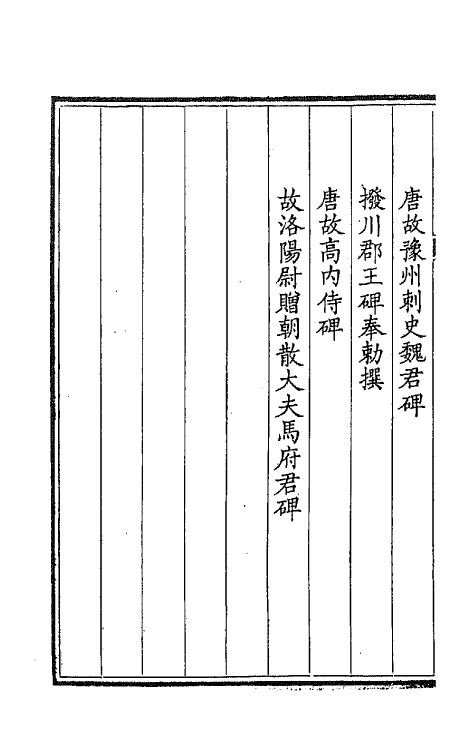 唐故豫州刺史魏君碑
撥川郡王碑奉勅撰
唐故高内侍碑
故洛陽尉贈朝散大夫馬府君碑